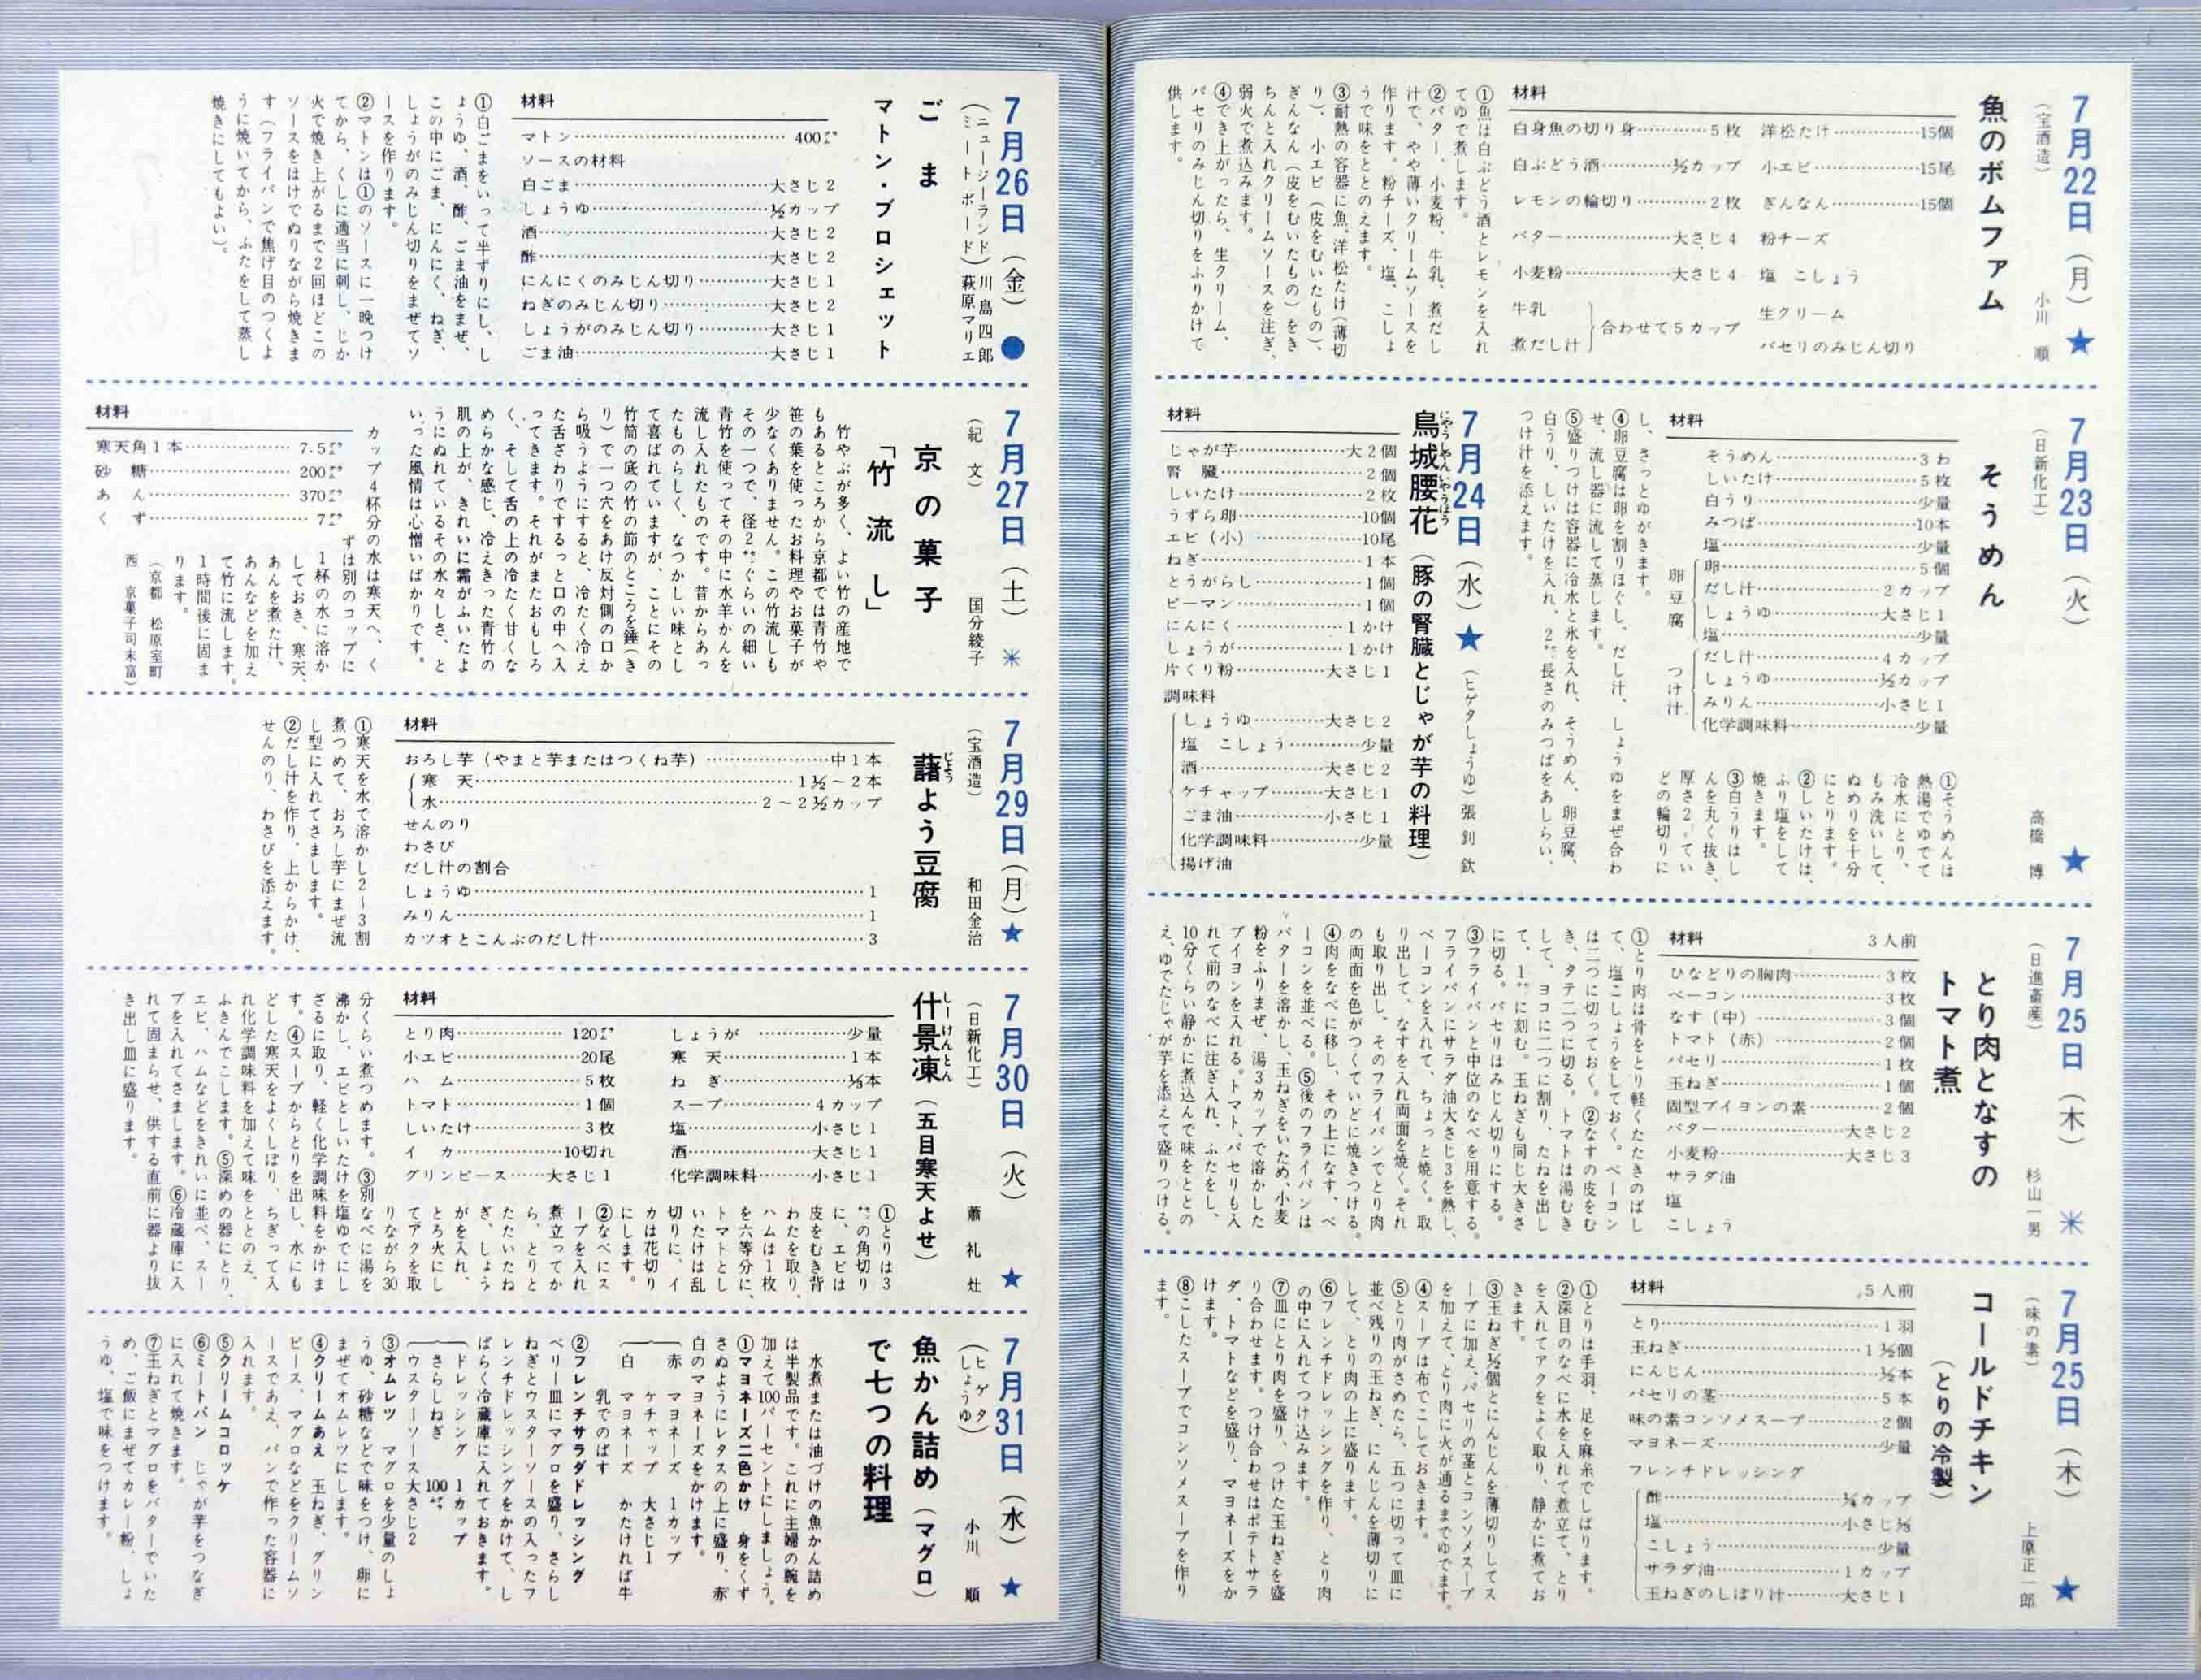 7月22日（月）★
（宝酒造）　小川　順
魚のボムファム
材料
白身魚の切り身…………5枚
白ぶどう酒…………½カップ
レモンの輪切り…………2枚
バター…………大さじ4
小麦粉…………大さじ4
牛乳
煮だし汁
合わせて5カップ
洋松たけ…………15個
小エビ…………15尾
ぎんなん…………15個
粉チーズ
塩　こしょう
生クリーム
パセリのみじん切り
①魚は白ぶどう酒とレモンを入れ
てゆで煮します。
②バター、小麦粉、牛乳、煮だし
汁で、やや薄いクリームソースを
作ります。粉チーズ、塩、こしょ
うで味をととのえます。
③耐熱の容器に魚、洋松たけ（薄切
り）、小エビ（皮をむいたもの）、
ぎんなん（皮をむいたもの）をき
ちんと入れクリームソースを注ぎ、
弱火で煮込みます。
④でき上がったら、生クリーム、
パセリのみじん切りをふりかけて
供します。
7月23日（火）★
（日新化工）　高橋　博
そうめん
材料
そうめん…………3わ
しいたけ…………5枚
白うり…………少量
みつば…………10本
塩…………少量
卵豆腐
卵…………5個
だし汁…………2カップ
しょうゆ…………大さじ1
塩…………少量
つけ汁
だし汁…………4カップ
しょうゆ…………½カップ
みりん…………小さじ1
化学調味料…………少量
①そうめんは
熱湯でゆでて
冷水にとり、
もみ洗いして、
ぬめりを十分
にとります。
②しいたけは、
ふり塩をして
焼きます。
③白うりはし
んを丸く抜き、
厚さ2㍉てい
どの輪切りに
し、さっとゆがきます。
④卵豆腐は卵を割りほぐし、だし汁、しょうゆをまぜ合わ
せ、流し器に流して蒸します。
⑤盛りつけは容器に冷水と氷を入れ、そうめん、卵豆腐、
白うり、しいたけを入れ、2㌢長さのみつばをあしらい、
つけ汁を添えます。
7月24日（水）★
（ヒゲタしょうゆ）張　釗　欽
鳥城腰花（豚の腎臓とじゃが芋の料理）
材料
じゃが芋…………大2個
腎　臓…………2個
しいたけ…………2枚
うずら卵…………10個
エビ（小）…………10尾
ねぎ…………1本
とうがらし…………1個
ピーマン…………1個
にんにく…………1かけ
しょうが…………1かけ
片くり粉…………大さじ1
調味料
しょうゆ…………大さじ2
塩　こしょう…………少量
酒…………大さじ2
ケチャップ…………大さじ1
ごま油…………小さじ1
化学調味料…………少量
揚げ油
7月25日（木）✳
（日進畜産）　杉山一男
とり肉となすの
トマト煮
材料　3人前
ひなどりの胸肉…………3枚
ベーコン…………3枚
なす（中）…………3個
トマト（赤）…………2個
パセリ…………1枚
玉ねぎ…………1個
固型ブイヨンの素…………2個
バター…………大さじ2
小麦粉…………大さじ3
サラダ油
塩
こしょう
①とり肉は骨をとり軽くたたきのばし
て、塩こしょうをしておく。ベーコン
は二つに切っておく。②なすの皮をむ
き、タテ二つに切る。トマトは湯むき
して、ヨコに二つに割り、たねを出し
て、1㌢に刻む。玉ねぎも同じ大きさ
に切る。パセリはみじん切りにする。
③フライパンと中位のなべを用意する。
フライパンにサラダ油大さじ3を熱し、
ベーコンを入れて、ちょっと焼く。取
り出して、なすを入れ両面を焼く。それ
も取り出し、そのフライパンでとり肉
の両面を色がつくていどに焼きつける。
④肉をなべに移し、その上になす、ベ
ーコンを並べる。⑤後のフライパンは
バターを溶かし、玉ねぎをいため、小麦
粉をふりまぜ、湯3カップで溶かした
ブイヨンを入れる。トマト、パセリも入
れて前のなべに注ぎ入れ、ふたをし、
10分くらい静かに煮込んで味をととの
え、ゆでたじゃが芋を添えて盛りつける。
7月25日（木）★
（味の素）　上原正一郎
コールドチキン
（とりの冷製）
材料　5人前
とり…………1羽
玉ねぎ…………1½個
にんじん…………½本
パセリの茎…………5本
味の素コンソメスープ…………2個
マヨネーズ…………少量
フレンチドレッシング
酢…………¼カップ
塩…………小さじ⅓
こしょう…………少量
サラダ油…………1カップ
玉ねぎのしぼり汁…………大さじ1
①とりは手羽、足を麻糸でしばります。
②深目のなべに水を入れて煮立て、とり
を入れてアクをよく取り、静かに煮てお
きます。
③玉ねぎ½個とにんじんを薄切りしてス
ープに加え、パセリの茎とコンソメスープ
を加えて、とり肉に火が通るまでゆでます。
④スープは布でこしておきます。
⑤とり肉がさめたら、五つに切って皿に
並べ残りの玉ねぎ、にんじんを薄切りに
して、とり肉の上に盛ります。
⑥フレンチドレッシングを作り、とり肉
の中に入れてつけ込みます。
⑦皿にとり肉を盛り、つけた玉ねぎを盛
り合わせます。つけ合わせはポテトサラ
ダ、トマトなどを盛り、マヨネーズをか
けます。
⑧こしたスープでコンソメスープを作り
ます。
7月26日（金）●
（ニュージーランド ミートボード）川島四郎
萩原マリエ
ごま
マトン・ブロシェット
材料
マトン…………400㌘
ソースの材料
白ごま…………大さじ2
しょうゆ…………½カップ
酒…………大さじ2
酢…………大さじ2
にんにくのみじん切り…………大さじ1
ねぎのみじん切り…………大さじ2
しょうがのみじん切り…………大さじ1
ごま油…………大さじ1
①白ごまをいって半ずりにし、し
ょうゆ、酒、酢、ごま油をまぜ、
この中にごま、にんにく、ねぎ、
しょうがのみじん切りをまぜてソ
ースを作ります。
②マトンは①のソースに一晩つけ
てから、くしに適当に刺し、じか
火で焼き上がるまで2回ほどこの
ソースをはけでぬりながら焼きま
す（フライパンで焦げ目のつくよ
うに焼いてから、ふたをして蒸し
焼きにしてもよい）。
7月27日（土）✳
（紀　文）　国分綾子
京の菓子
「竹流し」
竹やぶが多く、よい竹の産地で
もあるところから京都では青竹や
笹の葉を使ったお料理やお菓子が
少なくありません。この竹流しも
その一つで、径2㌢ぐらいの細い
青竹を使ってその中に水羊かんを
流し入れたものです。昔からあっ
たものらしく、なつかしい味とし
て喜ばれていますが、ことにその
竹筒の底の竹の節のところを錘（き
り）で一つ穴をあけ反対側の口か
ら吸うようにすると、冷たく冷え
た舌ざわりでするっと口の中へ入
ってきます。それがまたおもしろ
く、そして舌の上の冷たく甘くな
めらかな感じ、冷えきった青竹の
肌の上が、きれいに霜がふいたよ
うにぬれているその水々しさ、と
いった風情は心憎いばかりです。
材料
寒天角1本…………7.5㌘
砂　糖…………200㌘
あ　ん…………370㌘
く　ず…………7㌘
カップ4杯分の水は寒天へ、く
ずは別のコップに
1杯の水に溶か
しておき、寒天、
あんを煮た汁、
あんなどを加え
て竹に流します。
1時間後に固ま
ります。
（京都　松原室町
西　京菓子司末富）
7月29日（月）★
（宝酒造）　和田金治
藷よう豆腐
材料
おろし芋（やまと芋またはつくね芋）…………中1本
寒　天…………1½～2本
水…………2～2½カップ
せんのり
わさび
だし汁の割合
しょうゆ…………1
みりん…………1
カツオとこんぶのだし汁…………3
①寒天を水で溶かし2～3割
煮つめて、おろし芋にまぜ流
し型に入れてさまします。
②だし汁を作り、上からかけ、
せんのり、わさびを添えます。
7月30日（火）★
（日新化工）　蕭　礼　灶
什景凍（五目寒天よせ）
材料
とり肉…………120㌘
小エビ…………20尾
ハ　ム…………5枚
トマト…………1個
しいたけ…………3枚
イ　カ…………10切れ
グリンピース……大さじ1
しょうが…………少量
寒　天…………1本
ね　ぎ…………⅓本
スープ…………4カップ
塩…………小さじ1
酒…………大さじ1
化学調味料…………小さじ1
①とりは3
㌢の角切り
に、エビは
皮をむき背
わたを取り、
ハムは1枚
を六等分に、
トマトとし
いたけは乱
切りに、イ
カは花切り
にします。
②なべにス
ープを入れ
煮立ってか
ら、とりと
たたいたね
ぎ、しょう
がを入れ、
とろ火にし
てアクを取
りながら30
分くらい煮つめます。③別なべに湯を
沸かし、エビとしいたけを塩ゆでにし
ざるに取り、軽く化学調味料をかけま
す。④スープからとりを出し、水にも
どした寒天をよくしぼり、ちぎって入
れ化学調味料を加えて味をととのえ、
ふきんでこします。⑤深めの器にとり、
エビ、ハムなどをきれいに並べ、スー
プを入れてさまします。⑥冷蔵庫に入
れて固まらせ、供する直前に器より抜
き出し皿に盛ります。
7月31日（水）★
（ヒゲタしょうゆ）　小川　順
魚かん詰め（マグロ）
で七つの料理
水煮または油づけの魚かん詰め
は半製品です。これに主婦の腕を
加えて100パーセントにしましょう。
①マヨネーズ二色かけ　身をくず
さぬようにレタスの上に盛り、赤
白のマヨネーズをかけます。
赤　マヨネーズ　1カップ
ケチャップ　大さじ1
白　マヨネーズ　かたければ牛
乳でのばす
②フレンチサラダドレッシング
ベリー皿にマグロを盛り、さらし
ねぎとウスターソースの入ったフ
レンチドレッシングをかけて、し
ばらく冷蔵庫に入れておきます。
ドレッシング　1カップ
さらしねぎ　100㌘
ウスターソース大さじ2
③オムレツ　マグロを少量のしょ
うゆ、砂糖などで味をつけ、卵に
まぜてオムレツにします。
④クリームあえ　玉ねぎ、グリン
ピース、マグロなどをクリームソ
ースであえ、パンで作った容器に
入れます。
⑤クリームコロッケ
⑥ミートパン　じゃが芋をつなぎ
に入れて焼きます。
⑦玉ねぎとマグロをバターでいた
め、ご飯にまぜてカレー粉、しょ
うゆ、塩で味をつけます。